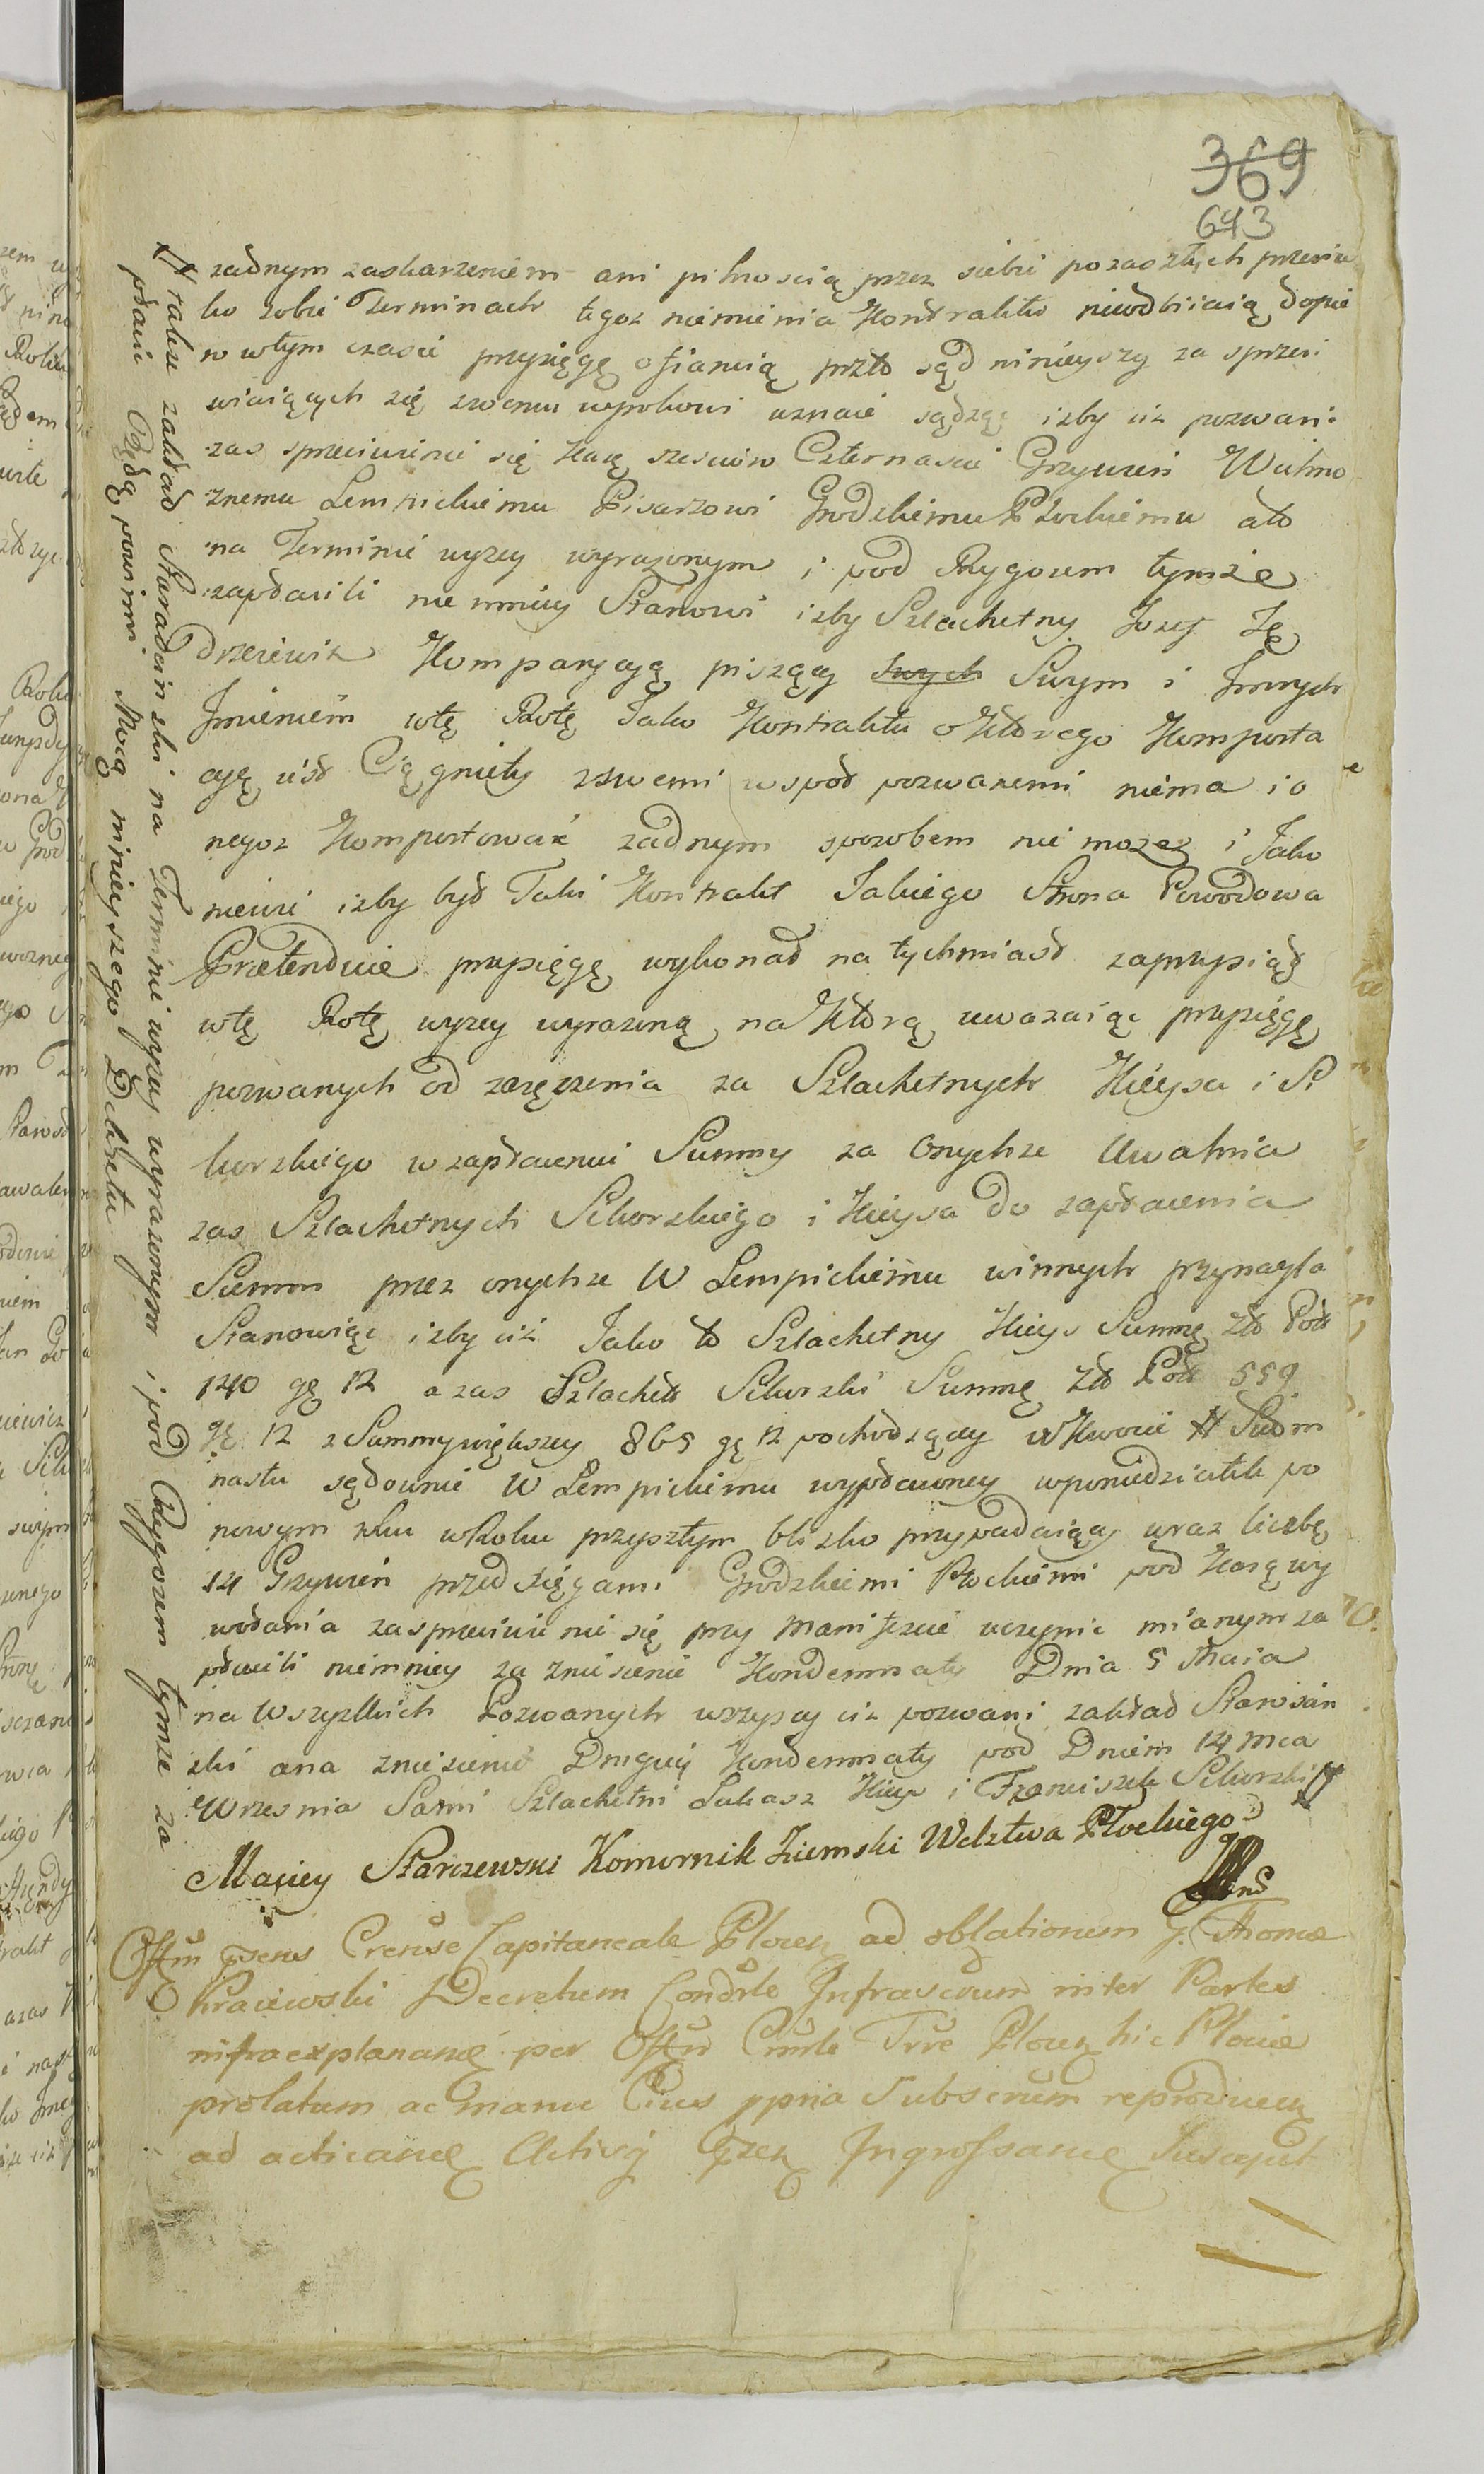 369
643
zadnym zaskarzeniem ani pilnoscią przez siebie pozaoszłych przeciw
ko sobie Terminach tegoz niemienia Kontraktu nieodbiiaią dopie
ro wtym czasie przysięgę ofiaruią przto sąd ninieyszy za sprzeci
wiaiących się swemu wyrokowi uznaie sądząc izby ciz pozwani
zas sprzeciwienie się Karę szesciu Czternascie Grzywien Wielmo
znemu Lempickiemu Pisarzowi Grodzkiemu Płockiemu ato
na Terminie wyzey wyrazonym i pod Rygorem tymze
zapłacili nie mniey Stanowi izby Szlachetny Jozef Ję
drzeiewicz Komparycyą piszący swych Swym i Innych
Imieniem wtę Rotę Jako Kontraktu o Ktorego Komporta
cyę iesł Ciągniety zswemi wspoł pozwanemi niema i o
negoz Komportować zadnym sposobem nie moze i Jako
niewie izby był Taki Kontrakt Jakiego Strona Powodowa
Prætenduie przysięgę wykonał na tychmiasł zaprzysiąsł
wtę Rotę wyzey wyrazoną na Ktorą uwazaiąc przysięgę
pozwanych od zaręczenia za Szlachetnych Kieysa i Si
korskiego wzapłaceniu Summy za Onychze Uwalnia
zas Szlachetnych Sikorskiego i Kieysa do zapłacenia
Summ przez onychze W Lempickiemu winnych przynagla
Stanowiąc izby ciz Jako to Szlachetny Kieys Summę Zło Pols
140 gę 12 a zas Szlachet Sikorski Summę Zło Pols 559
gę 12 z Summy większey 865 gę 12 pochodzącey wKwocie # Siedm
nastu sądownie W Lempickiemu wypłaconey wponiedziałek po
nowym roku wRoku przyszłym blisko przypadaiący wraz liczbę
14 Grzywien przed Xięgami Grodzkiemi Płockiemi pod Karą wy
wołania zasprzeciwienie się przy Manifescie uczynić mianym za
płacili niemniey za zniesienie Kondemnaty Dnia 5 Maia
na Wszystkich Pozwanych wszyscy ciz pozwani zakład Staroscin
ski ana zniesienie Drugiey Kondemnaty pod Dniem 14 Mca
Wrzesnia Sami Szlachetni Lukasz Kieys i Franciszek Sikorski #
Maciey Starczewski Komornik Ziemski Wdztwa Płockiego
# takze zakład Staroscinski na Terminie wyzey wyrazonym i pod Rygorem tymze za
płacić Będą powinni Mocą ninieyszego Dekretu
Offm psens Crense Capitaneale Plocen ad oblationem G. Thomæ
Kraiewski Decretum Condrle Infrascrum inter Partes
infraexplanané per Offm Cmrle Trre Plocen hic Plociæ
prolatum ac Manu Eius ppria Subscrum reproducen
ad acticané Activi pzen Ingrossané Suscepit